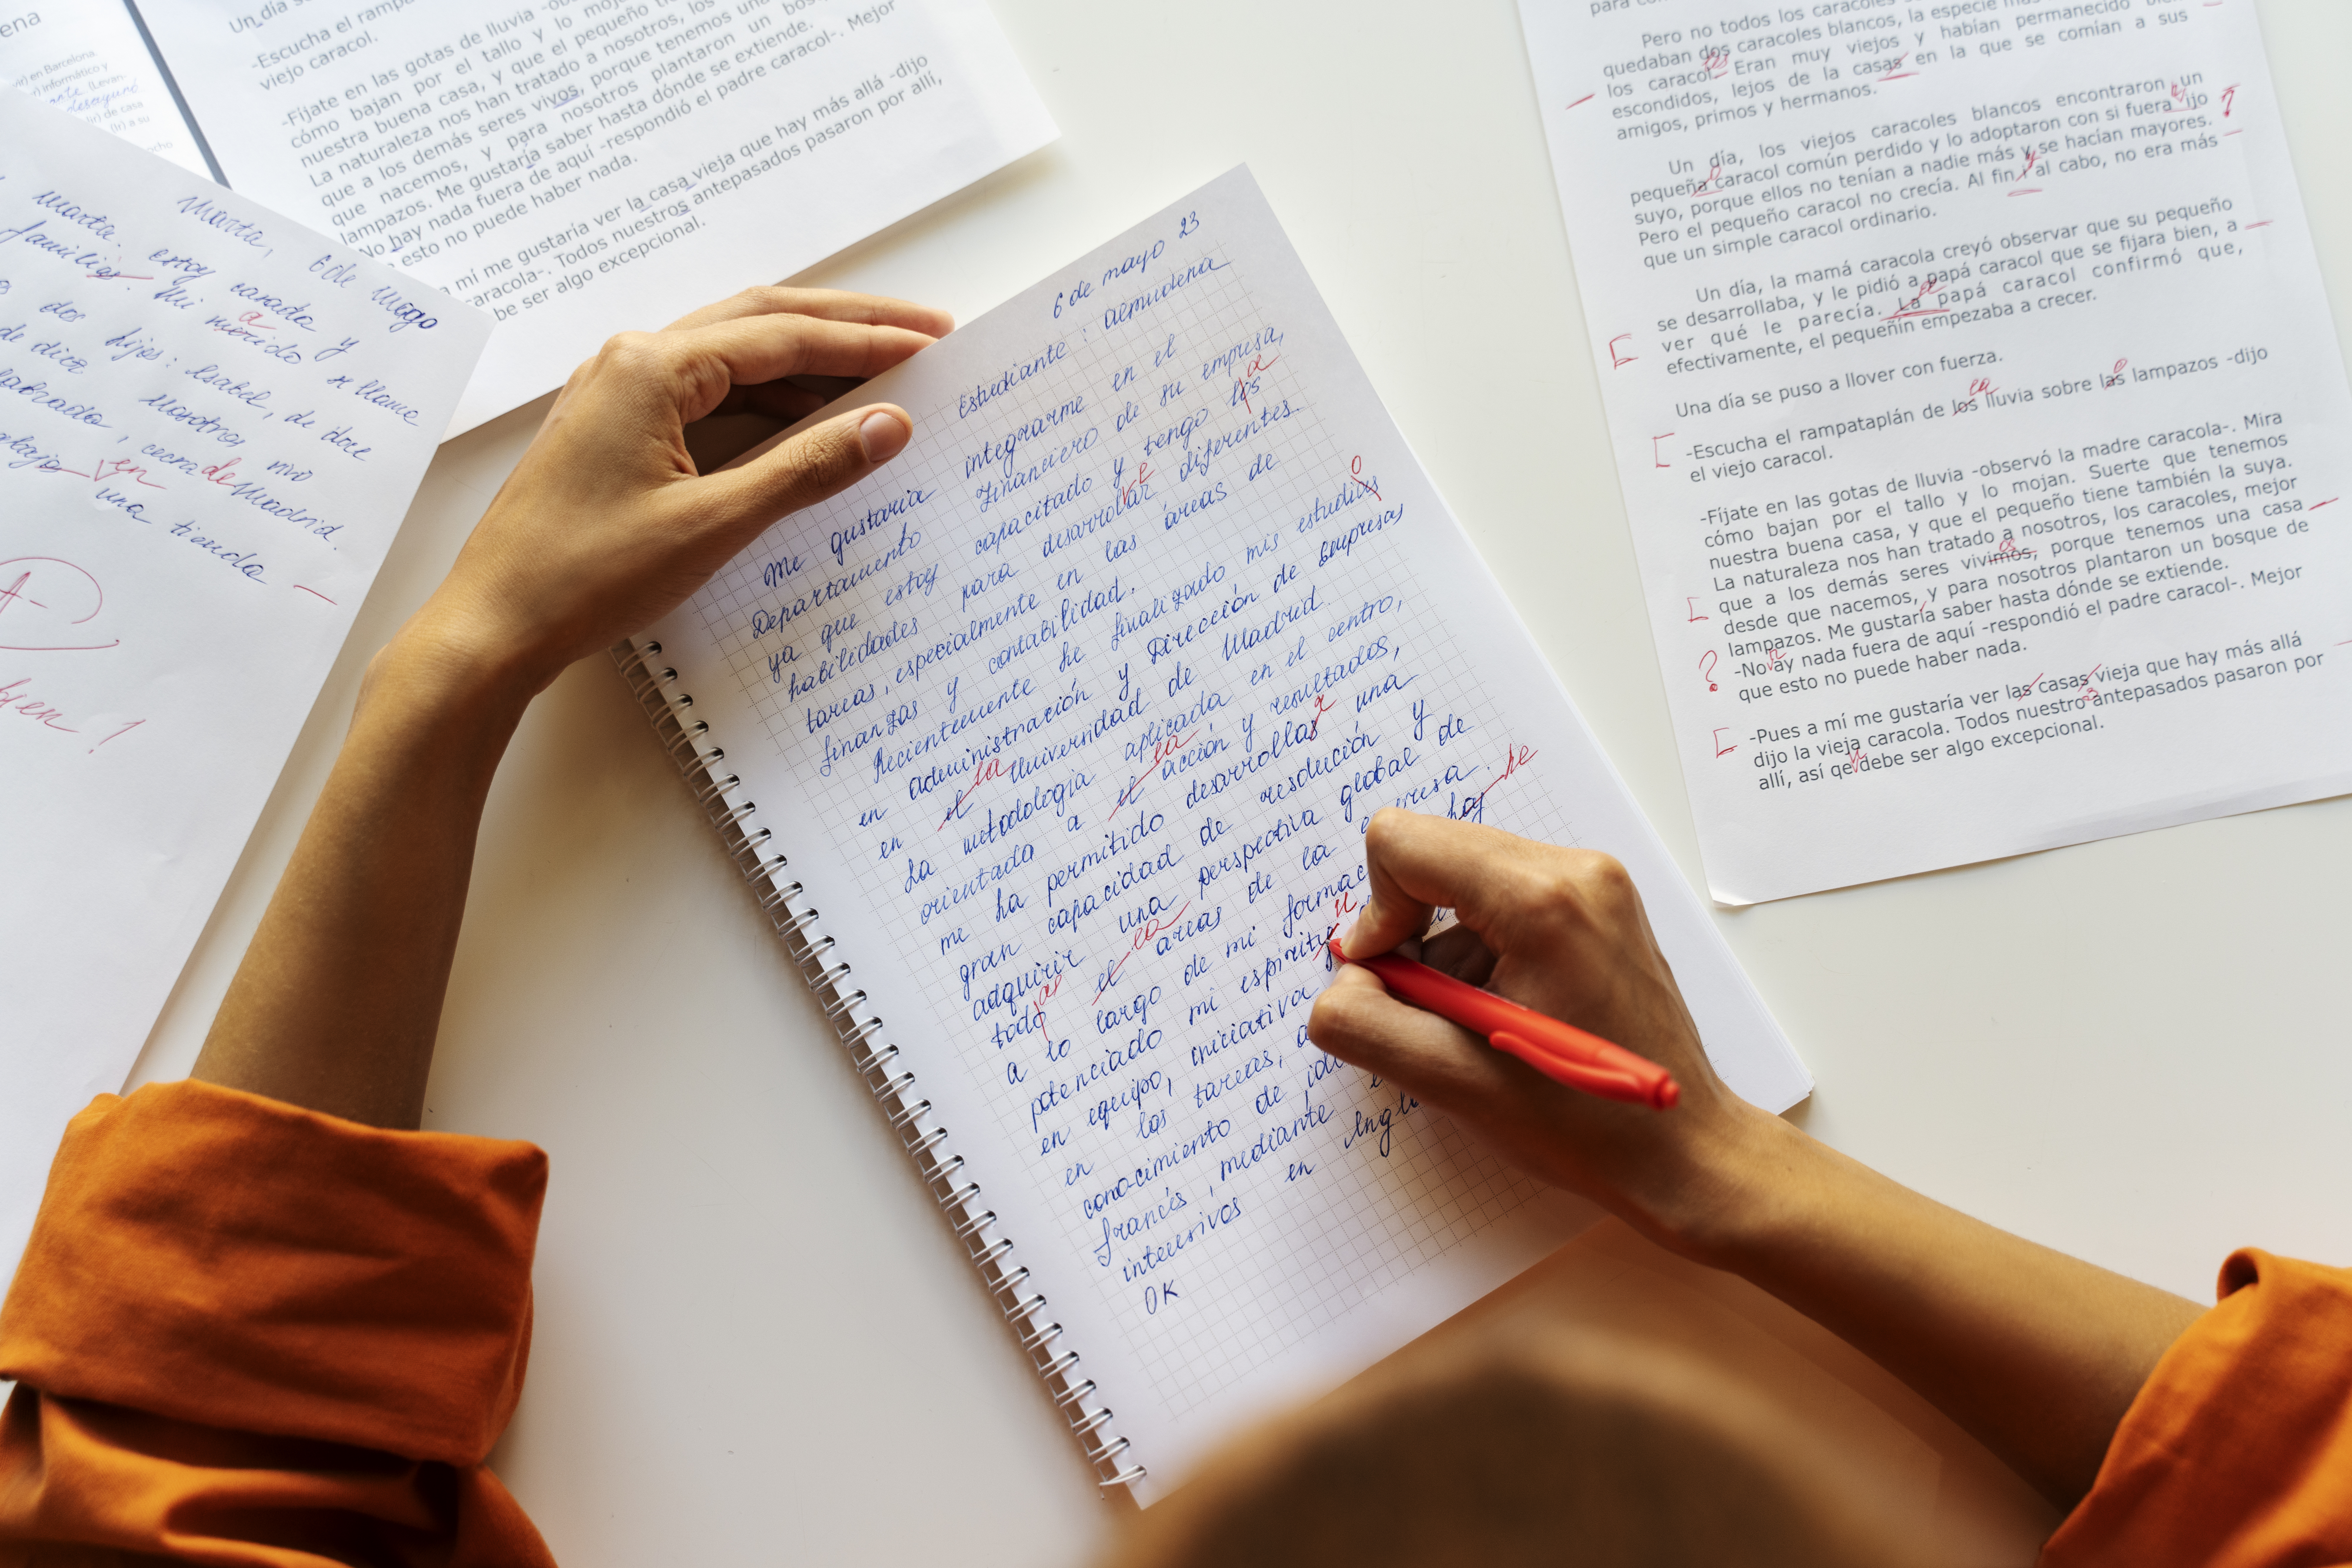 ena
vir) en Barcelona
informático y
(Levan-
desayunó
(Ir) de casa
(Ir) a su
Un día se
-Escucha el rampata
viejo caracol.
-Fíjate en las gotas de lluvia -ob
cómo bajan por el tallo y lo moja
nuestra buena casa, y que el pequeño t
La naturaleza nos han tratado a nosotros, los
que a los demás seres vivos, porque tenemos una
que nacemos, y para nosotros plantaron un bosq
lampazos. Me gustaría saber hasta dónde se extiende.
No hay nada fuera de aquí -respondió el padre caracol-. Mejor
esto no puede haber nada.
a mí me gustaría ver la casa vieja que hay más allá -dijo
caracola-. Todos nuestros antepasados pasaron por allí,
be ser algo excepcional.
Marta, 6 de mayo
Marta. estoy casada y
familiar. Mi morido se llame
a
dos hijos: Isabel, de doce
de diez Nosotros vivo
cecra de Madrid.
en una tienda
A-
bien!
6 de mayo 23
Estudiante : Aemudena
Me gustaria integrarme en el
Departamento Financiero de su empresa,
ya que estoy capacitado y tengo los
a
habilidades para desarrollar diferentes
tareas, especialmente en las áreas de
finanzas y contabilidad.
Recientemente he finalizado mis estudias
o
en administración y Dirección de Empresas
en el Universidad de Madrid.
la
La metodología aplicada en el centro,
orientada a el acción y resultados,
la
me ha permitido desarrollas una
r
gran capacidad de resolución y
adquirir una perspectiva global de
todo el areas de la empresa.
as
la
a lo largo de mi formac hay
he
potenciado mi espirity
u
en equipo, iniciativa
en las tareas, a
conocimiento de idi
francés, mediante
intensivos en Ingl
OK
para con
Pero no todos los caracoles
quedaban dos caracoles blancos, la especie más
los caracol- Eran muy viejos y habían permanecido
escondidos, lejos de la casas en la que se comían a sus
amigos, primos y hermanos.
Un día, los viejos caracoles blancos encontraron un
pequeña caracol común perdido y lo adoptaron con si fuera ijo
o
?
suyo, porque ellos no tenían a nadie más y se hacían mayores.
Pero el pequeño caracol no crecía. Al fin y al cabo, no era más
que un simple caracol ordinario.
Un día, la mamá caracola creyó observar que su pequeño
se desarrollaba, y le pidió a papá caracol que se fijara bien, a
ver qué le parecía. La papá caracol confirmó que,
efectivamente, el pequeñín empezaba a crecer.
Una día se puso a llover con fuerza.
-Escucha el rampataplán de los lluvia sobre las lampazos -dijo
la
o
el viejo caracol.
-Fíjate en las gotas de lluvia -observó la madre caracola-. Mira
cómo bajan por el tallo y lo mojan. Suerte que tenemos
nuestra buena casa, y que el pequeño tiene también la suya.
La naturaleza nos han tratado a nosotros, los caracoles, mejor
que a los demás seres vivimos, porque tenemos una casa
os
desde que nacemos, y para nosotros plantaron un bosque de
lampazos. Me gustaría saber hasta dónde se extiende.
? -No ay nada fuera de aquí -respondió el padre caracol-. Mejor
que esto no puede haber nada.
-Pues a mí me gustaría ver las casas vieja que hay más allá
dijo la vieja caracola. Todos nuestro antepasados pasaron por
s
allí, así qe debe ser algo excepcional.
u